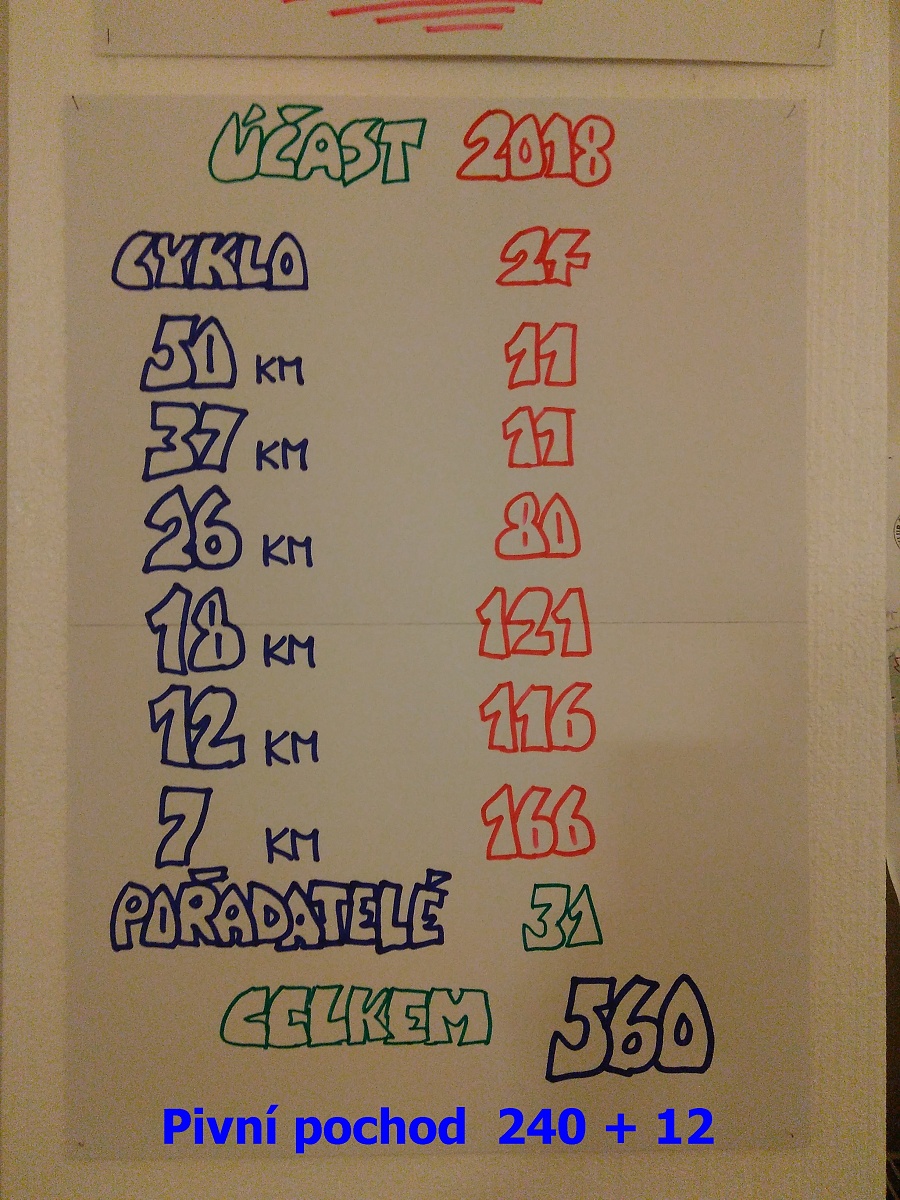 ÚČAST 2018
CYKLO 24
50 KM 11
37 KM 11
26 KM 80
18 KM 121
12 KM 116
7 KM 166
POŘADATELÉ 31
CELKEM 560
Pivní pochod 240 + 12